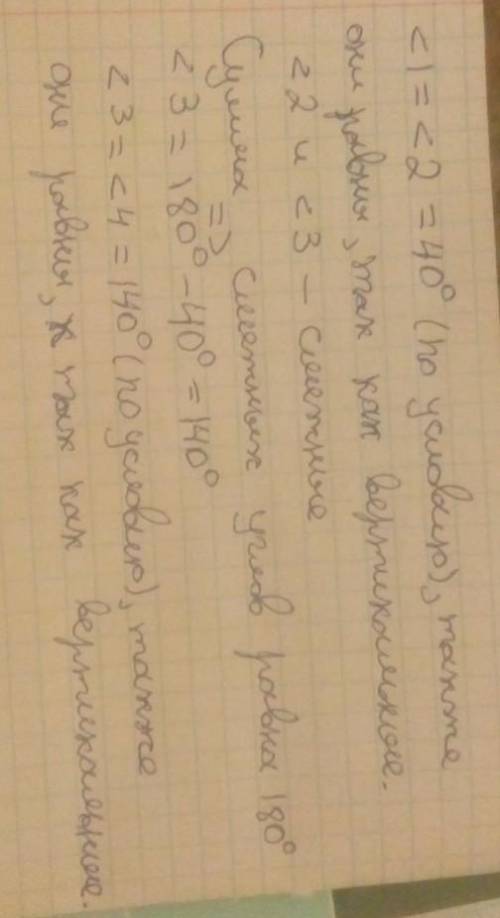 <1 = <2 = 40° (по условию), также
они равны, так как вертикальные.
<2 и <3 – смежные
Сумма смежных углов равна 180°
=>
<3 = 180° – 40° = 140°
<3 = <4 = 140° (по условию), также
они равны, так как вертикальные.